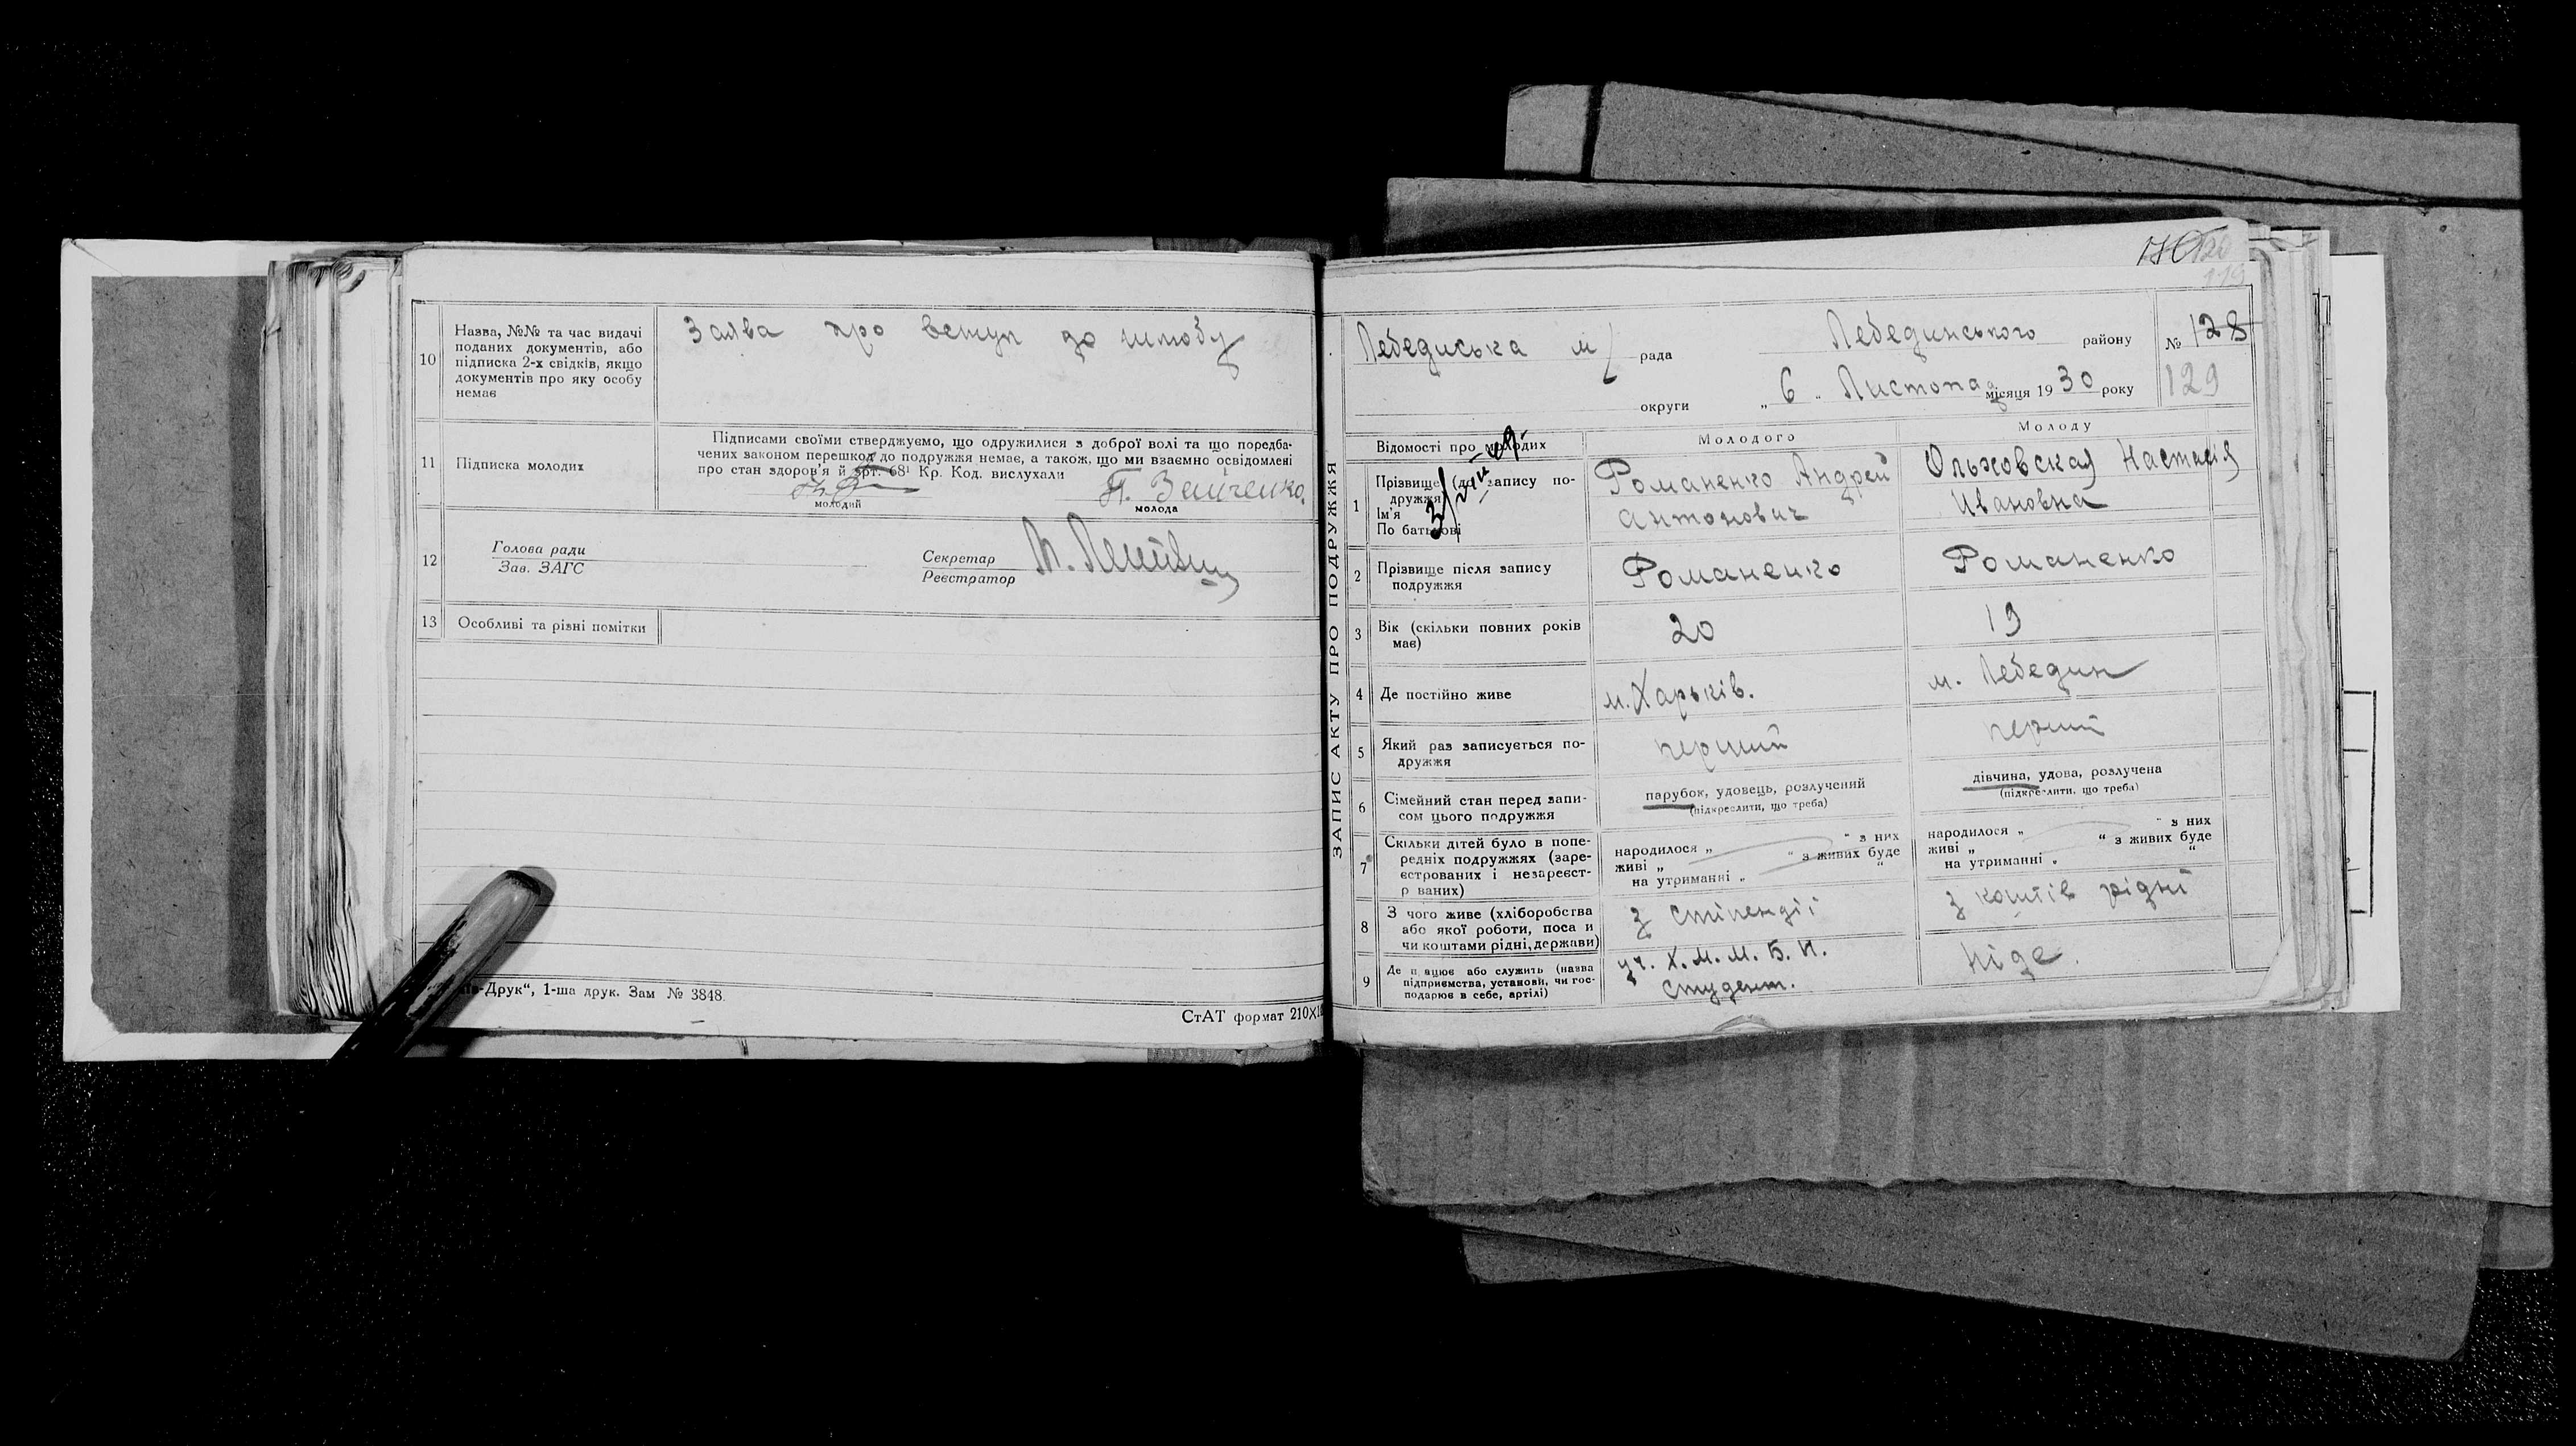 10
Назва, №№ та час видачі
поданих документів, або
підписка 2-х свідків, якщо
документів про яку особу
немає
Заява про вступ до шлюбу
11
Підписка молодих
Підписами своїми стверджуємо, що одружилися з доброї волі та що поредба-
чених законом перешкод до подружжя немає, а також, що ми взаємно освідомлені
про стан здоров'я й арт. 68¹ Кр. Код. вислухали
молодий
молода
12
Голова ради
Зав. ЗАГС
Секретар
Реєстратор
13
Особливі та різні помітки
-Друк“, 1-ша друк. Зам № 3848.
СтАТ формат 210Х1
ЗАПИС АКТУ ПРО ПОДРУЖЖЯ
119
Лебедиська м/ рада
Лебединського району
№ 128
округи
„ 6 „ Листопада місяця 1930 року
129
Відомості про молодих
Молодого
Молоду
1
Прізвище (до запису по-
дружжя)
Ім'я
По батькові
Романенко Андрей
Антонович
Ольховская Настасія
Ивановна
2
Прізвище після запису
подружжя
Романенко
Романенко
3
Вік (скільки повних років
має)
20
19
4
Де постійно живе
м. Харьків.
м. Лебедин
5
Який раз записується по-
дружжя
перший
перший
6
Сімейний стан перед запи-
сом цього подружжя
парубок, удовець, розлучений
(підкреслити, що треба)
дівчина, удова, розлучена
(підкреслити, що треба)
7
Скільки дітей було в попе-
редніх подружжах (заре-
єстрованих і незареєст-
р ваних)
народилося „ “ з них
живі „ “ з живих буде
на утриманні „ “
народилося „ “ з них
живі „ “ з живих буде
на утриманні „ “
8
З чого живе (хліборобства
або якої роботи, поса и
чи коштами рідні, держави)
З стіпендії
З коштів рідні
9
Де п ацює або служить (назва
підприємства, установи, чи гос-
подарює в себе, артілі)
уч. Х. М. М. Б. И.
студент.
Ніде.